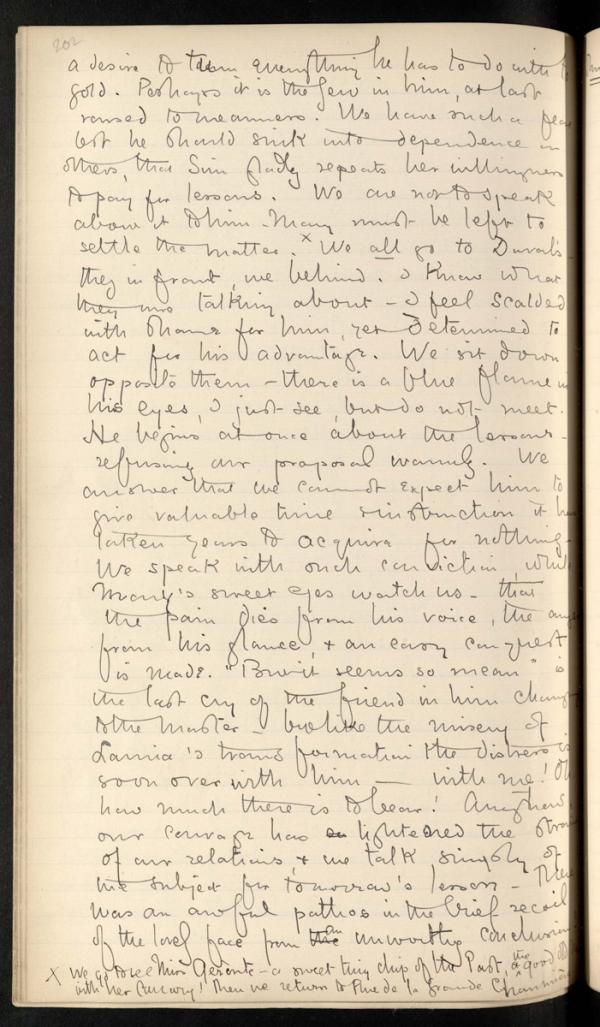 202
a desire to turn everything he has to do with to
gold. Perhaps it is the Jew in him, at last
roused to meanness. We have such a fear
lest he should sink into dependence on
others, that Sim gladly repeats her willingness
to pay for lessons. We are not to speak
about it to him - Mary must be left to
settle the matter. x We all go to Duval's -
they in front, we behind. I know what
they are talking about - I feel scalded
with shame for him, yet determined to
act for his advantage. We sit down
opposite them - there is a blue flame in
his eyes, I just see, but do not meet.
He begins at once about the lessons -
refusing our proposal warmly. We
answer that we cannot expect him to
give valuable time & instruction it has
taken years to acquire for nothing -
We speak with such conviction, while
Mary's sweet eyes watch us - that
the pain dies from his voice, the anger
from his glance, & an easy conquest
is made. "But it seems so mean" is
the last cry of the friend in him changing
to the Master - but like the misery of
Lamia's transformation the distress is
soon over with him - with me! Oh
how much there is to bear! Anyhow,
our courage has lightened the strain
of our relations, & we talk simply of
the subject for tomorrow's lesson - There
was an awful pathos in the brief recoil
of the face from an unworthy conclusion
x We go to see Miss Geronte - a sweet tiny chip of the Past, good
with her Cannary! Then we return to Rue de la Grande Chaumière